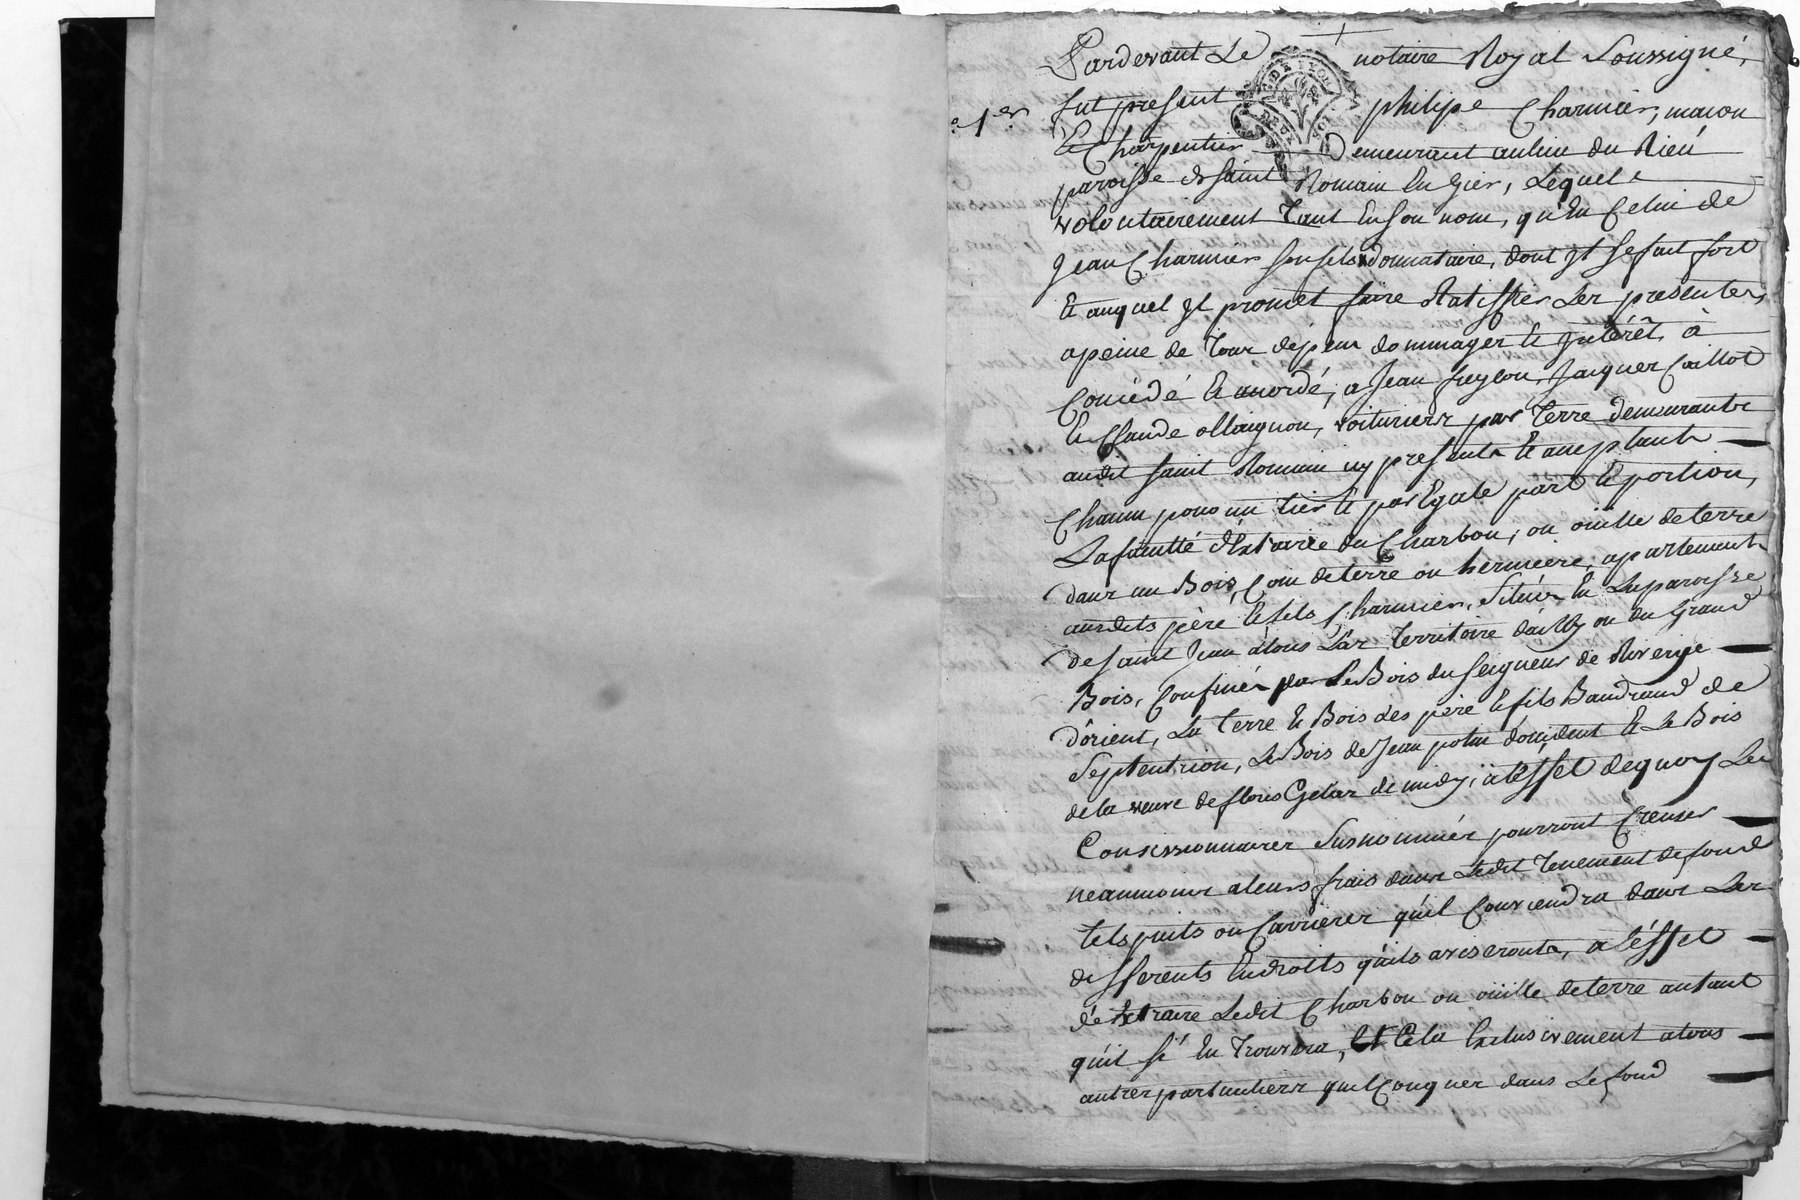 Pardevant Le notaire Royal Soussigné,
1er fut present philipe Charmier, maçon
Et Charpentier Demeurant au lieu du Rieu
paroisse de saint Romain En Gier, Lequel
volontairement Tant En son nom, qu'En Celui de
Jean Charmier son fils donnataire, dont Jl se fait fort
Et auquel Jl promet faire Ratiffier Les presentes,
apeine de Tous dépens dommages Et Jntérêts, à
Concédé Et accordé, a Jean freyçon, Jacques Caillot
Et Claude Maignon, voituriers par Terre demeurants
audit saint Romain icy presents Et acceptants
Chacun pour un tier Et par Egale part Et portion,
La faculté d'Extraire du Charbon, ou ouille de terre
dans un Bois, Coin de terre ou hermiere, apartenants
ausdits père Et fils Charmier, Situés En La paroisse
de saint Jean atous Las, Territoire dailly ou du Grand
Bois, Confinés par Le Bois du seigneur de Riverije
d'òrient, La Terre Et Bois des père Et fils Baudrand de
Septentrion, Le Bois de Jean potin doccident Et Le Bois
de la veuve de floris Gelas de midy; àl'Effet dequoy Les
Concessionnaires Susnommés pourront Creuser
neanmoins aleurs frais dans Ledit Tenement de fond
Tels puits ou Carrieres qu'il Conviendra dans Les
differents Endroits qu'ils aviseronts, a l'éffet
d'éxtraire Ledit Charbon ou oüille de terre autant
qu'il s'é En Trouvera, Et Cela Exclusivement atous
autres particuliers quelConques dans Le fond